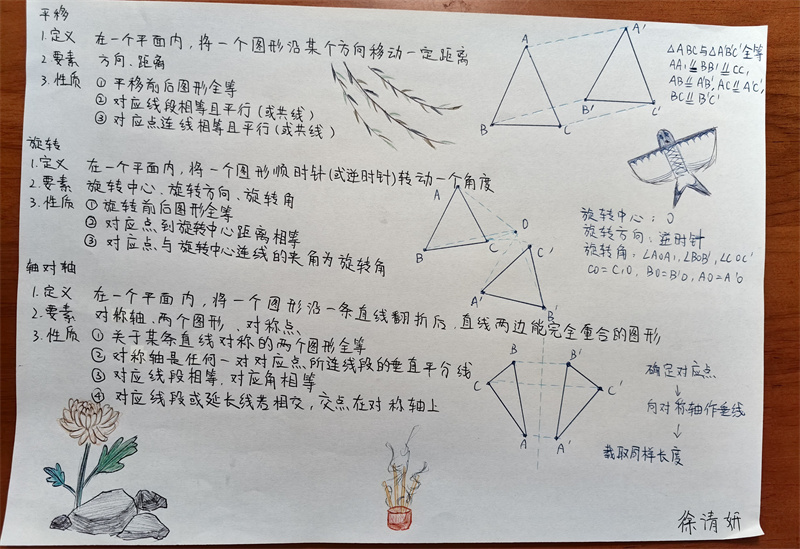 平移
1.定义 在一个平面内，将一个图形沿某个方向移动一定距离
2.要素 方向.距离
3.性质 ① 平移前后图形全等
② 对应线段相等且平行(或共线)
③ 对应点连线相等且平行(或共线)
A
A'
B
C
B'
C'
△ABC与△A'B'C'全等
AA₁⫽BB'⫽CC,
AB⫽A'B', AC⫽A'C',
BC⫽B'C'
旋转
1.定义 在一个平面内，将一个图形顺时针(或逆时针)转动一个角度
2.要素 旋转中心、旋转方向、旋转角
3.性质 ①旋转前后图形全等
② 对应点到旋转中心距离相等
③ 对应点与旋转中心连线的夹角为旋转角
A
B
C
O
C'
A'
B'
旋转中心：O
旋转方向：逆时针
旋转角：∠AOA₁,∠BOB',∠COC'
CO=C₁O, BO=B'O, AO=A'O
轴对轴
1.定义 在一个平面内，将一个图形沿一条直线翻折后，直线两边能完全重合的图形
2.要素 对称轴、两个图形、对称点
3.性质 ① 关于某条直线对称的两个图形全等
② 对称轴是任何一对对应点所连线段的垂直平分线
③ 对应线段相等.对应角相等
④ 对应线段或延长线若相交，交点在对称轴上
B
B'
C
C'
A
A'
确定对应点
↓
向对称轴作垂线
↓
截取同样长度
徐请妍